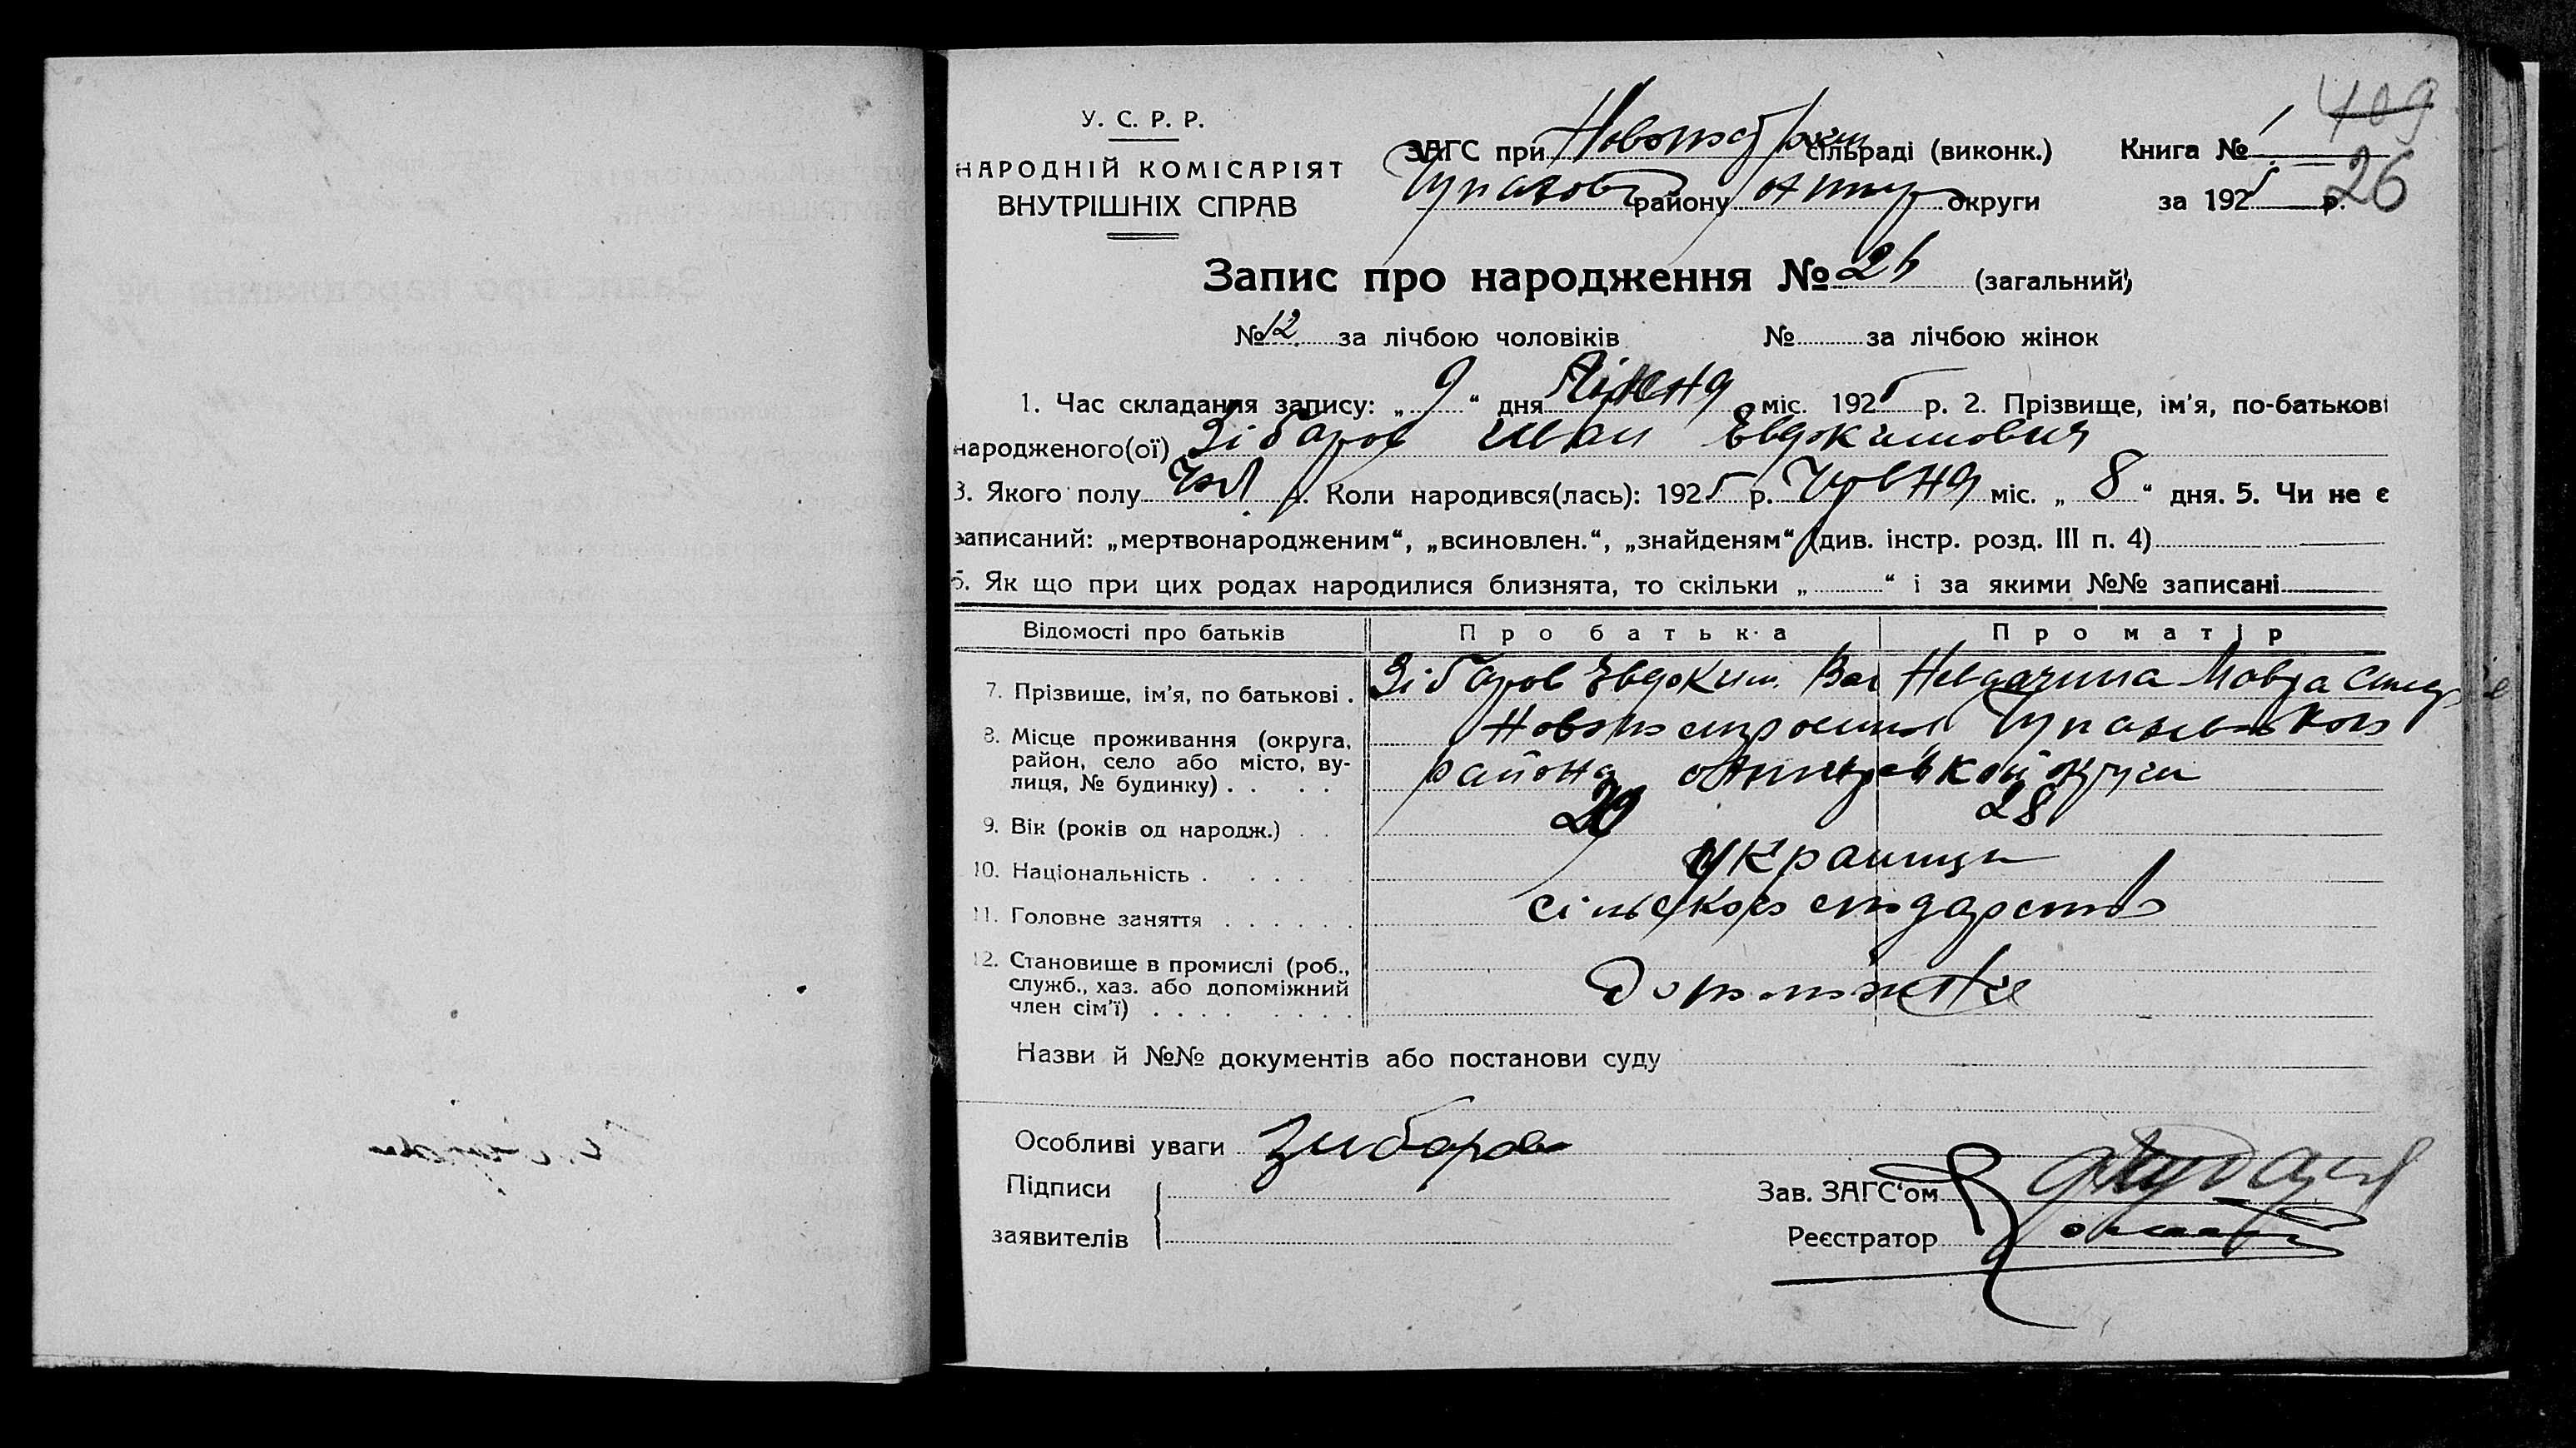 У. С. Р. Р.
НАРОДНІЙ КОМІСАРІЯТ
ВНУТРІШНІХ СПРАВ
409
ЗАГС при сільраді (виконк.) Книга № 1
району округи за 1925 р. 26
Запис про народження № 26 (загальний)
№ 12 за лічбою чоловіків № за лічбою жінок
1. Час складання запису: „ 9 “ дня міс. 1925 р. 2. Прізвище, ім'я, по-батькові
народженого(ої) Зібаров Иван Евдокимович
3. Якого полу Чол 4. Коли народився(лась): 1925 р. міс. „ 8 “ дня. 5. Чи не є
записаний: „мертвонародженим“, „всиновлен.“, „знайденям“ (див. інстр. розд. III п. 4)
6. Як що при цих родах народилися близнята, то скільки „ “ і за якими №№ записані
Відомості про батьків Про батька Про матір
7. Прізвище, ім'я, по батькові . Зібаров Евдоким. Вас Мавра
8. Місце проживання (округа,
район, село або місто, ву-
лиця, № будинку) . . . . района округи
9. Вік (років од народж.) . . 29 28
10. Національність . . . . . украинци
11. Головне заняття . . . . . . сільське
12. Становище в промислі (роб.,
служб., хаз. або допоміжний
член сім'ї) . . . . . . . . Допоміжне
Назви й №№ документів або постанови суду
Особливі уваги Зибаров
Підписи
заявителів
Зав. ЗАГС‘ом
Реєстратор